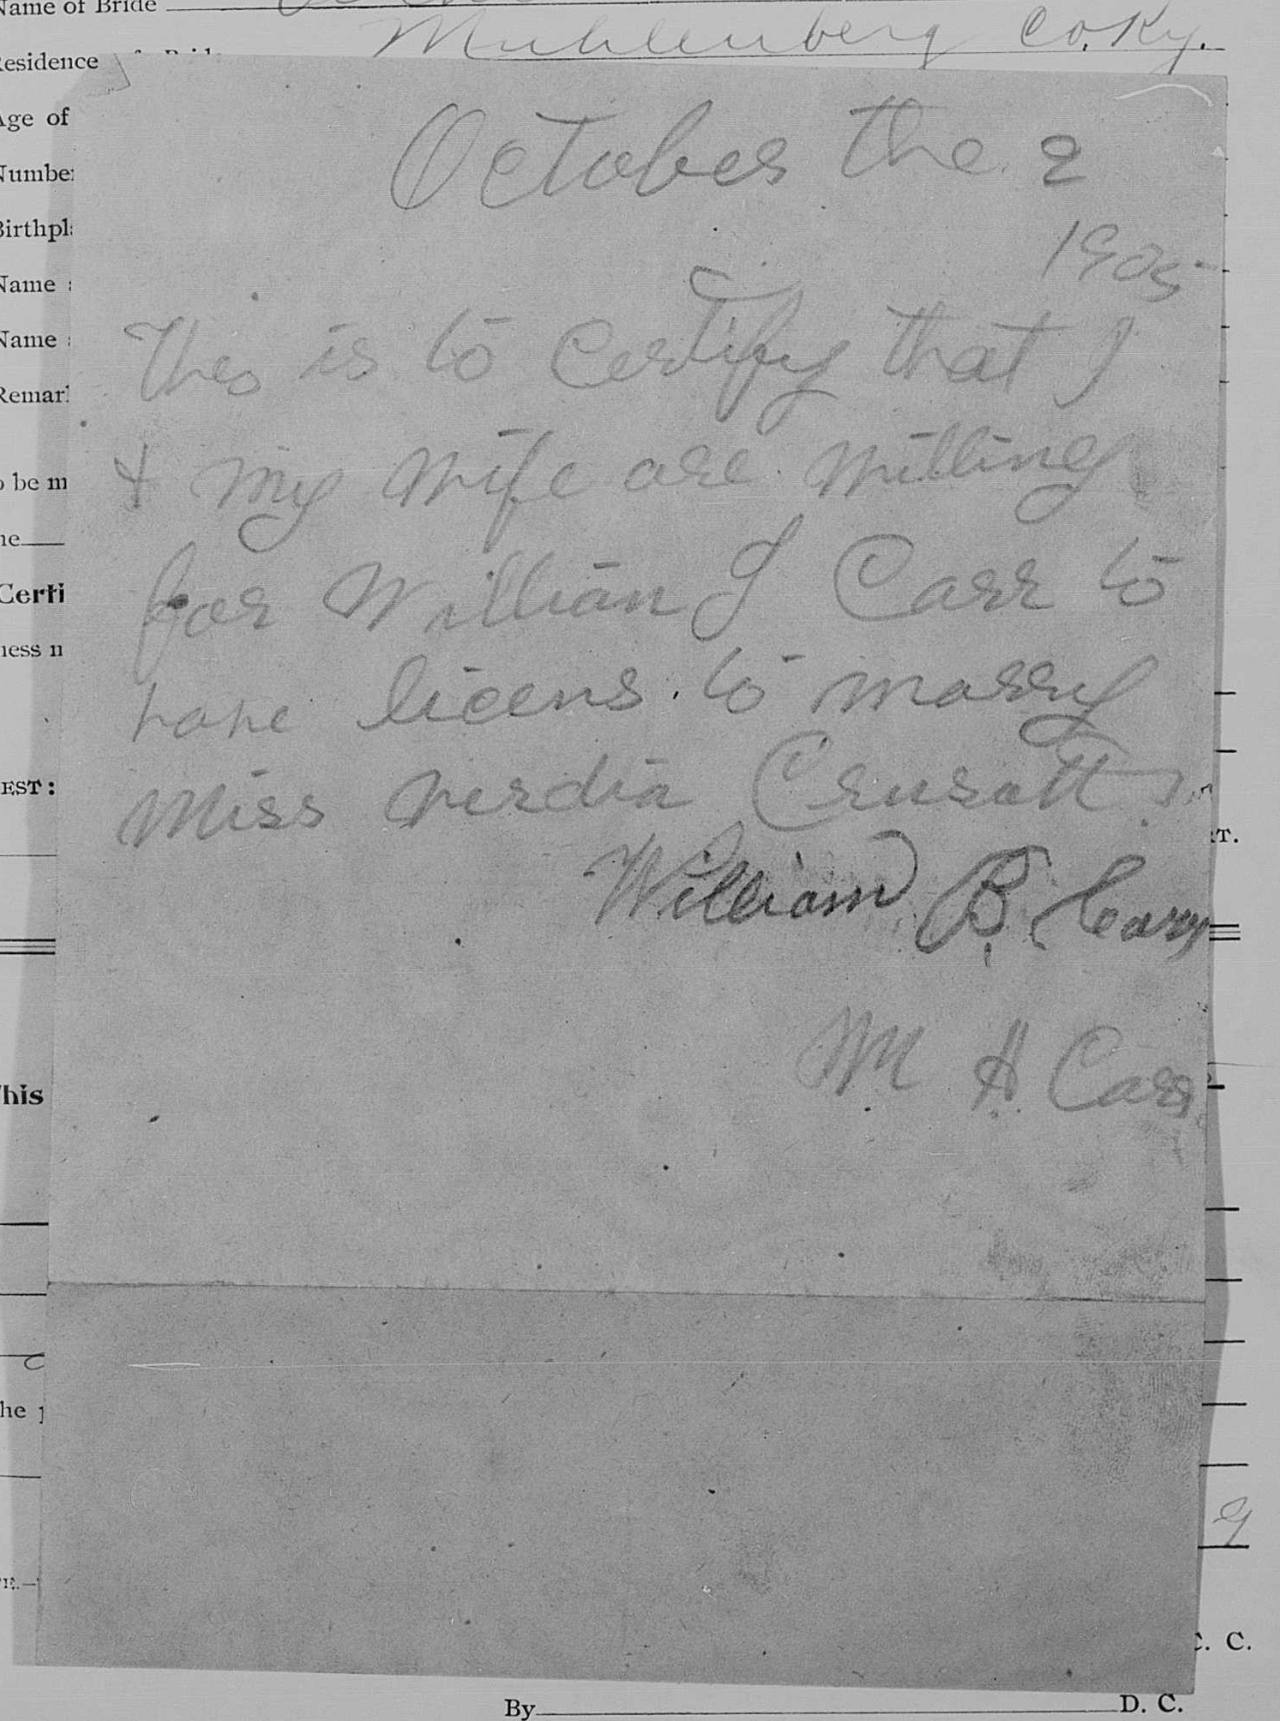 Name of Bride
Muhlenberg Co. Ky.
Residence
Age of
Number
Birthpl
Name
Name
Remar
October the 2
1905
This is to certify that I
& my wife are willing
o be m
he
for William J Carr to
Certi
ness n
have licens to marry
EST:
Miss Verdia Crusatt
RT.
William B. Carr
M H Carr
This
he
9
C. C.
By D. C.